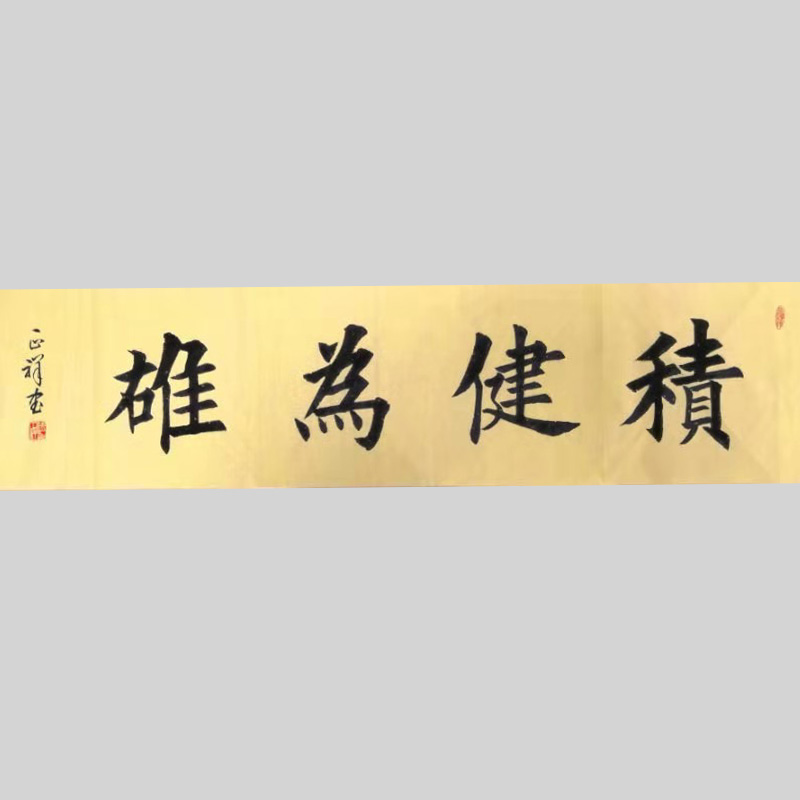 積健為雄
正祥书